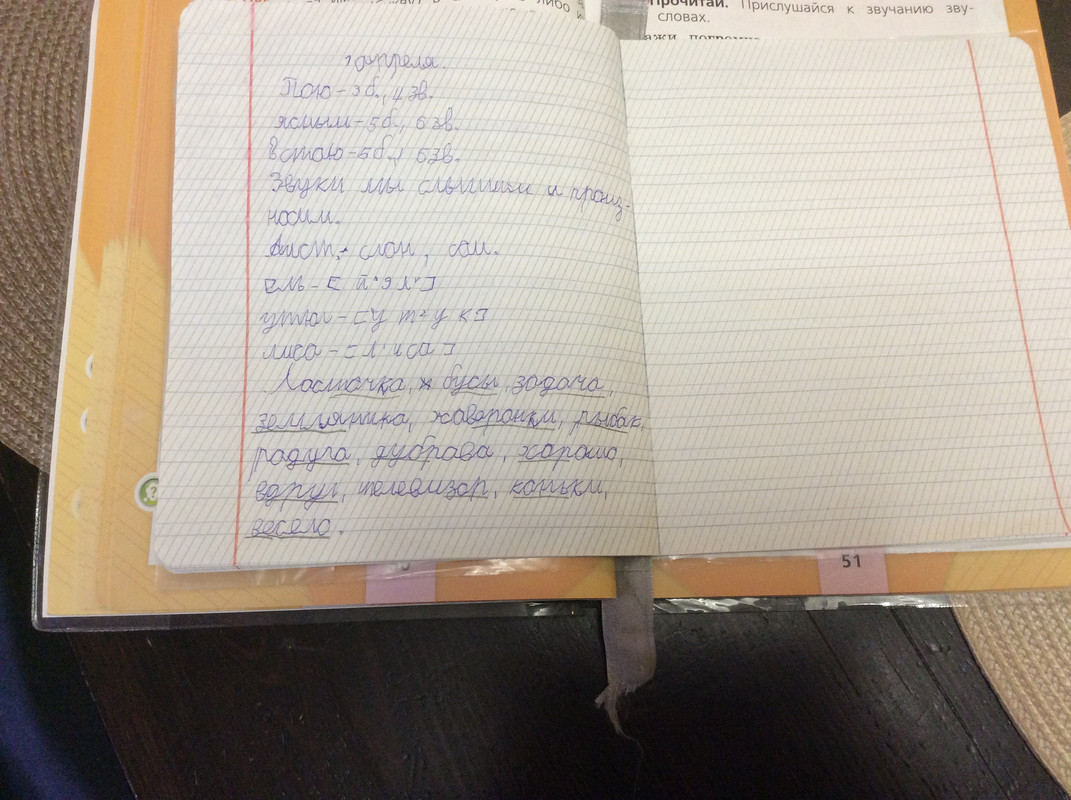 либо
Прочитай. Прислушайся к звучанию зву-
словах.
1 апреля.
Пою – 3 б., 4 зв.
ясным – 5 б., 6 зв.
Встаю – 5 б., 6 зв.
Звуки мы слышим и произ-
носим.
Лист, слон, сом.
Ель – [й'эл']
утюг – [ут'ук]
лиса – [л'иса]
Ласточка, бусы, задача,
земляника, жаваронки, рыбак,
радуга, дубрава, хорошо,
вдруг, телевизор, коньки,
весело.
51